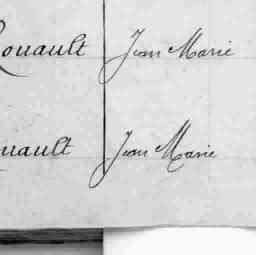 Rouault Jean Marie
Rouault Jean Marie